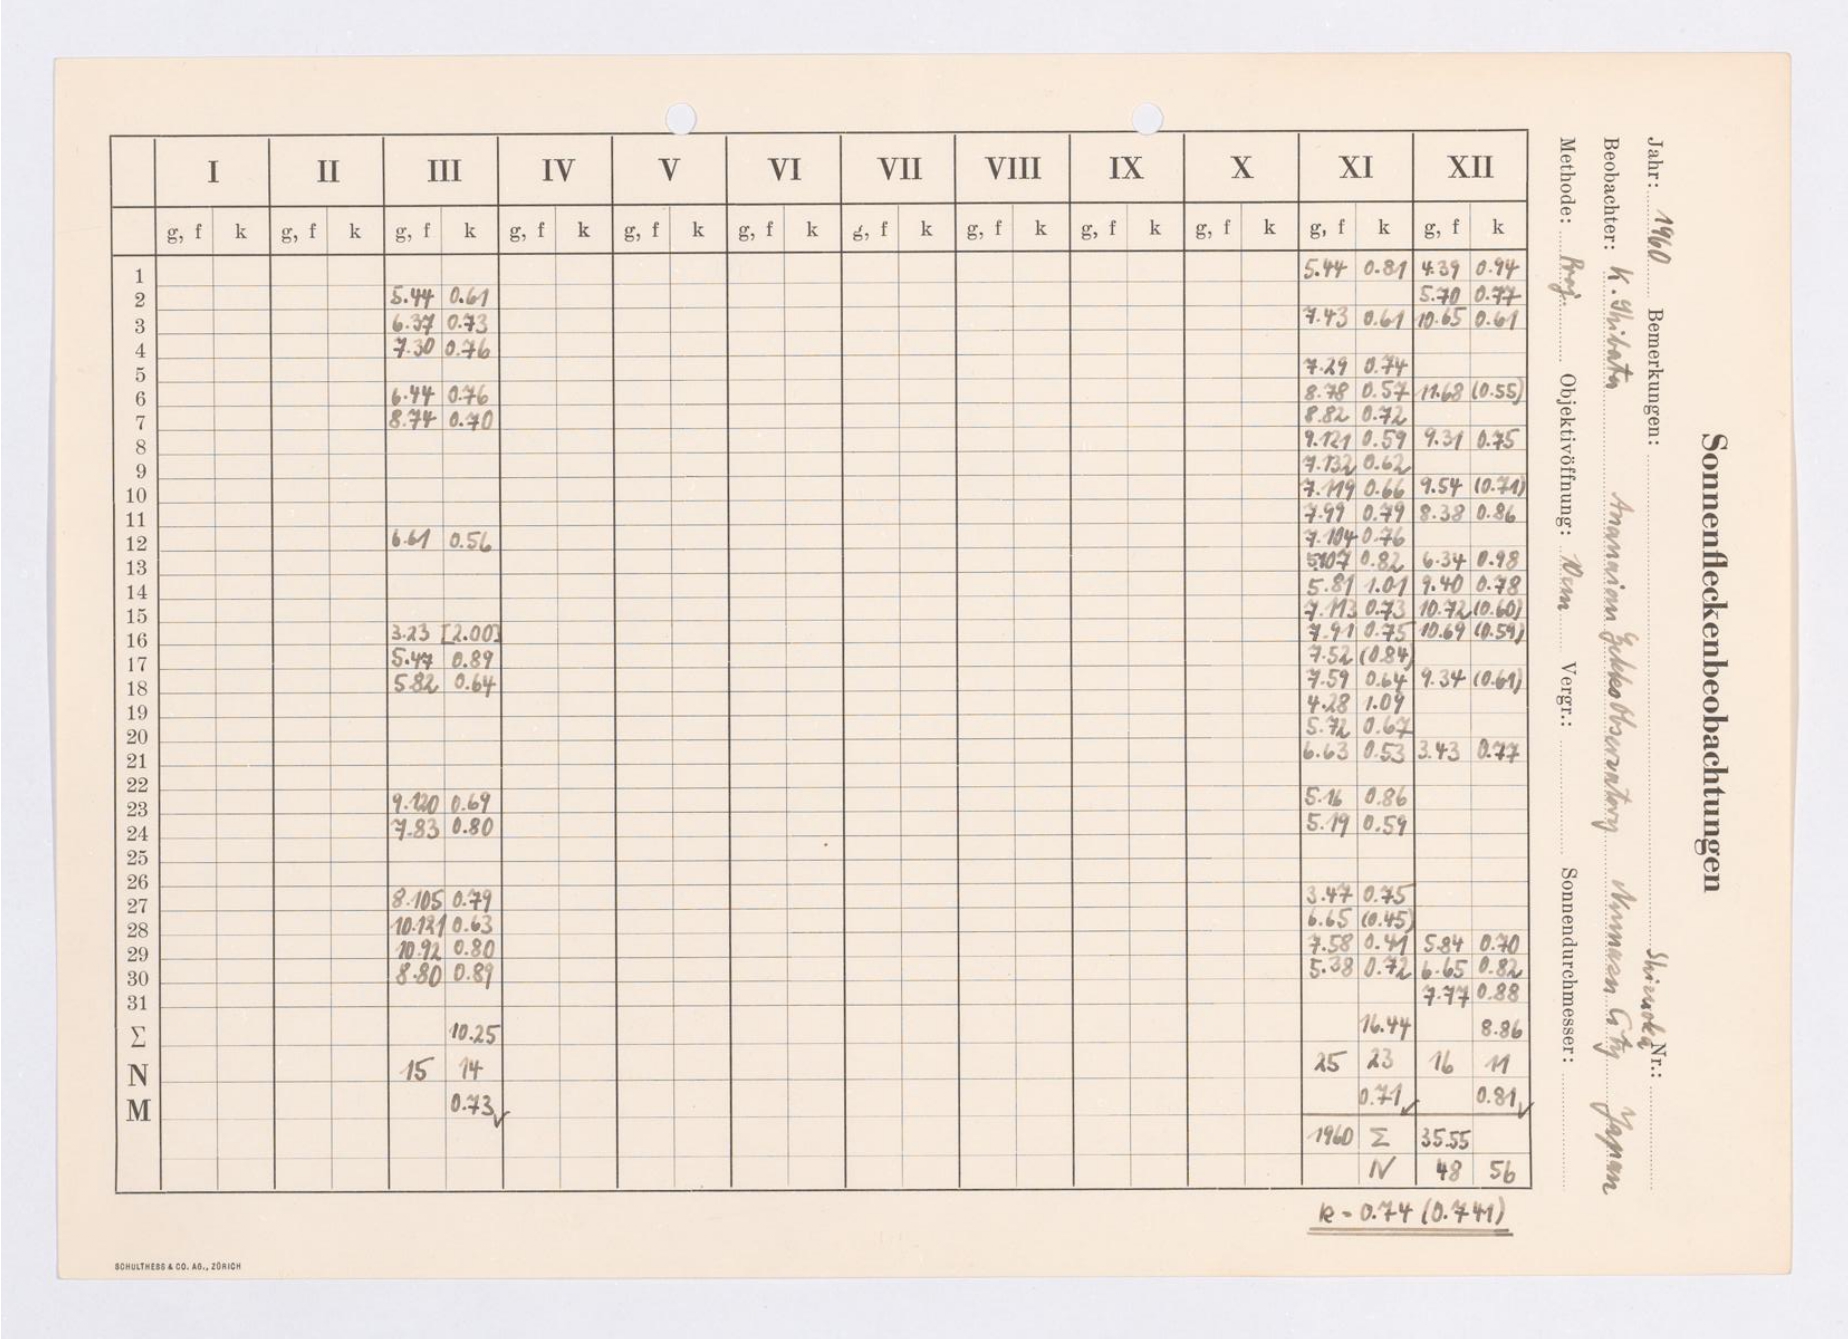 Sonnenfleckenbeobachtungen
Jahr: 1960 Bemerkungen: Nr.:
Beobachter: K. Shibata Observatory City Japan
Methode: Proj. Objektivöffnung: Vergr.: Sonnendurchmesser:
I II III IV V VI VII VIII IX X XI XII
g, f k g, f k g, f k g, f k g, f k g, f k g, f k g, f k g, f k g, f k g, f k g, f k
1 5.44 0.81 4.39 0.94
2 5.44 0.61 5.70 0.77
3 6.37 0.73 7.43 0.61 10.65 0.61
4 7.30 0.76
5 7.29 0.74
6 6.44 0.76 8.78 0.57 11.68 (0.55)
7 8.74 0.70 8.82 0.72
8 9.121 0.59 9.31 0.75
9 7.132 0.62
10 7.119 0.66 9.54 (0.71)
11 7.97 0.79 8.38 0.86
12 6.61 0.56 7.104 0.76
13 5.107 0.82 6.34 0.98
14 5.81 1.01 9.40 0.78
15 7.113 0.73 10.72 (0.60)
16 3.23 [2.00] 7.91 0.75 10.69 (0.59)
17 5.47 0.89 7.52 (0.84)
18 5.82 0.64 7.59 0.64 9.34 (0.61)
19 4.28 1.09
20 5.72 0.67
21 6.63 0.53 3.43 0.77
22
23 9.120 0.69 5.16 0.86
24 7.83 0.80 5.19 0.59
25
26
27 8.105 0.79 3.47 0.75
28 10.121 0.63 6.65 (0.45)
29 10.92 0.80 7.58 0.41 5.84 0.70
30 8.80 0.89 5.38 0.72 6.65 0.82
31 7.77 0.88
Σ 10.25 16.44 8.86
N 15 14 25 23 16 11
M 0.73 ✓ 0.71 ✓ 0.81 ✓
1960 Σ 35.55
N 48 56
k = 0.74 (0.741)
SCHULTHESS & CO. AG., ZÜRICH